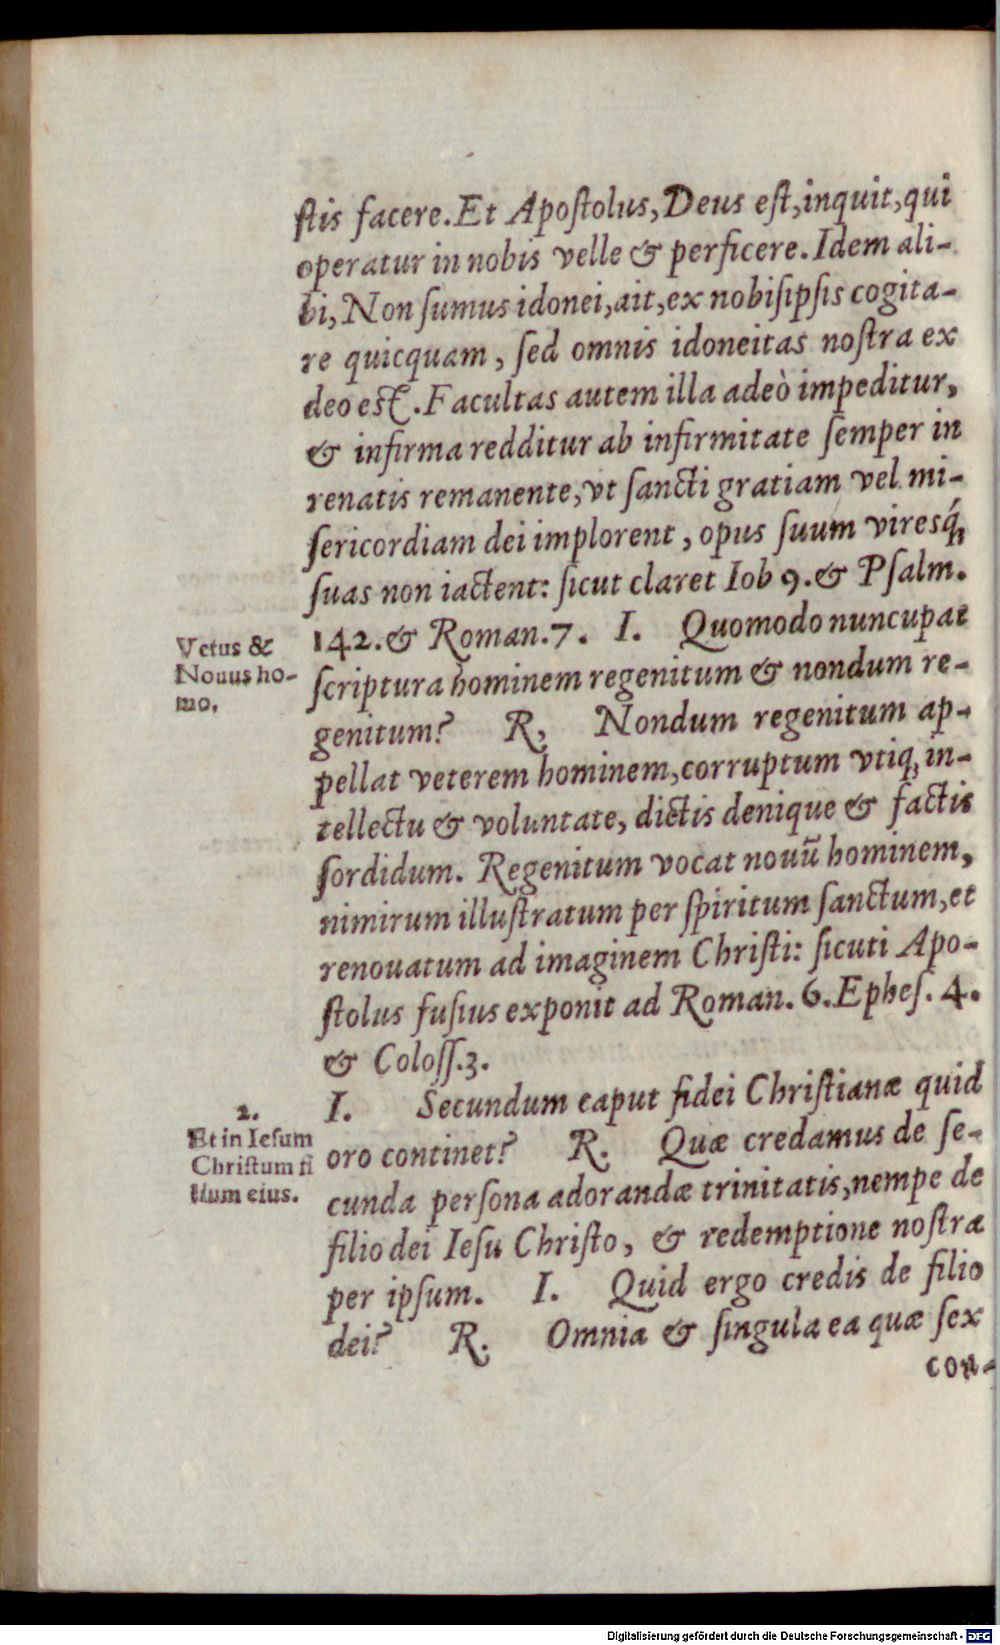 ſtis facere. Et Apoſtolus, Deus eſt, inquit, qui
operatur in nobis velle & perficere. Idem ali-
bi, Non ſumus idonei, ait, ex nobiſipſis cogita-
re quicquam, ſed omnis idoneitas noſtra ex
deo eſt. Facultas autem illa adeò impeditur,
& infirma redditur ab infirmitate ſemper in
renatis remanente, vt ſancti gratiam vel mi-
ſericordiam dei implorent, opus ſuum viresq́;
ſuas non iactent: ſicut claret Iob 9. & Pſalm.
142. & Roman. 7. I. Quomodo nuncupat
Vetus &
Nouus ho-
mo.
ſcriptura hominem regenitum & nondum re-
genitum? R, Nondum regenitum ap-
pellat veterem hominem, corruptum vtiq; in-
tellectu & voluntate, dictis denique & factis
ſordidum. Regenitum vocat nouū hominem,
nimirum illuſtratum per ſpiritum ſanctum, et
renouatum ad imaginem Chriſti: ſicuti Apo-
ſtolus fuſius exponit ad Roman. 6. Epheſ. 4.
& Coloſſ. 3.
2.
Et in Ieſum
Chriſtum fi
lium eius.
I. Secundum caput fidei Chriſtianæ quid
oro continet? R. Quæ credamus de ſe-
cunda perſona adorandæ trinitatis, nempe de
filio dei Ieſu Chriſto, & redemptione noſtra
per ipſum. I. Quid ergo credis de filio
dei? R. Omnia & ſingula ea quæ ſex
con-
Digitalisierung gefördert durch die Deutsche Forschungsgemeinschaft - DFG